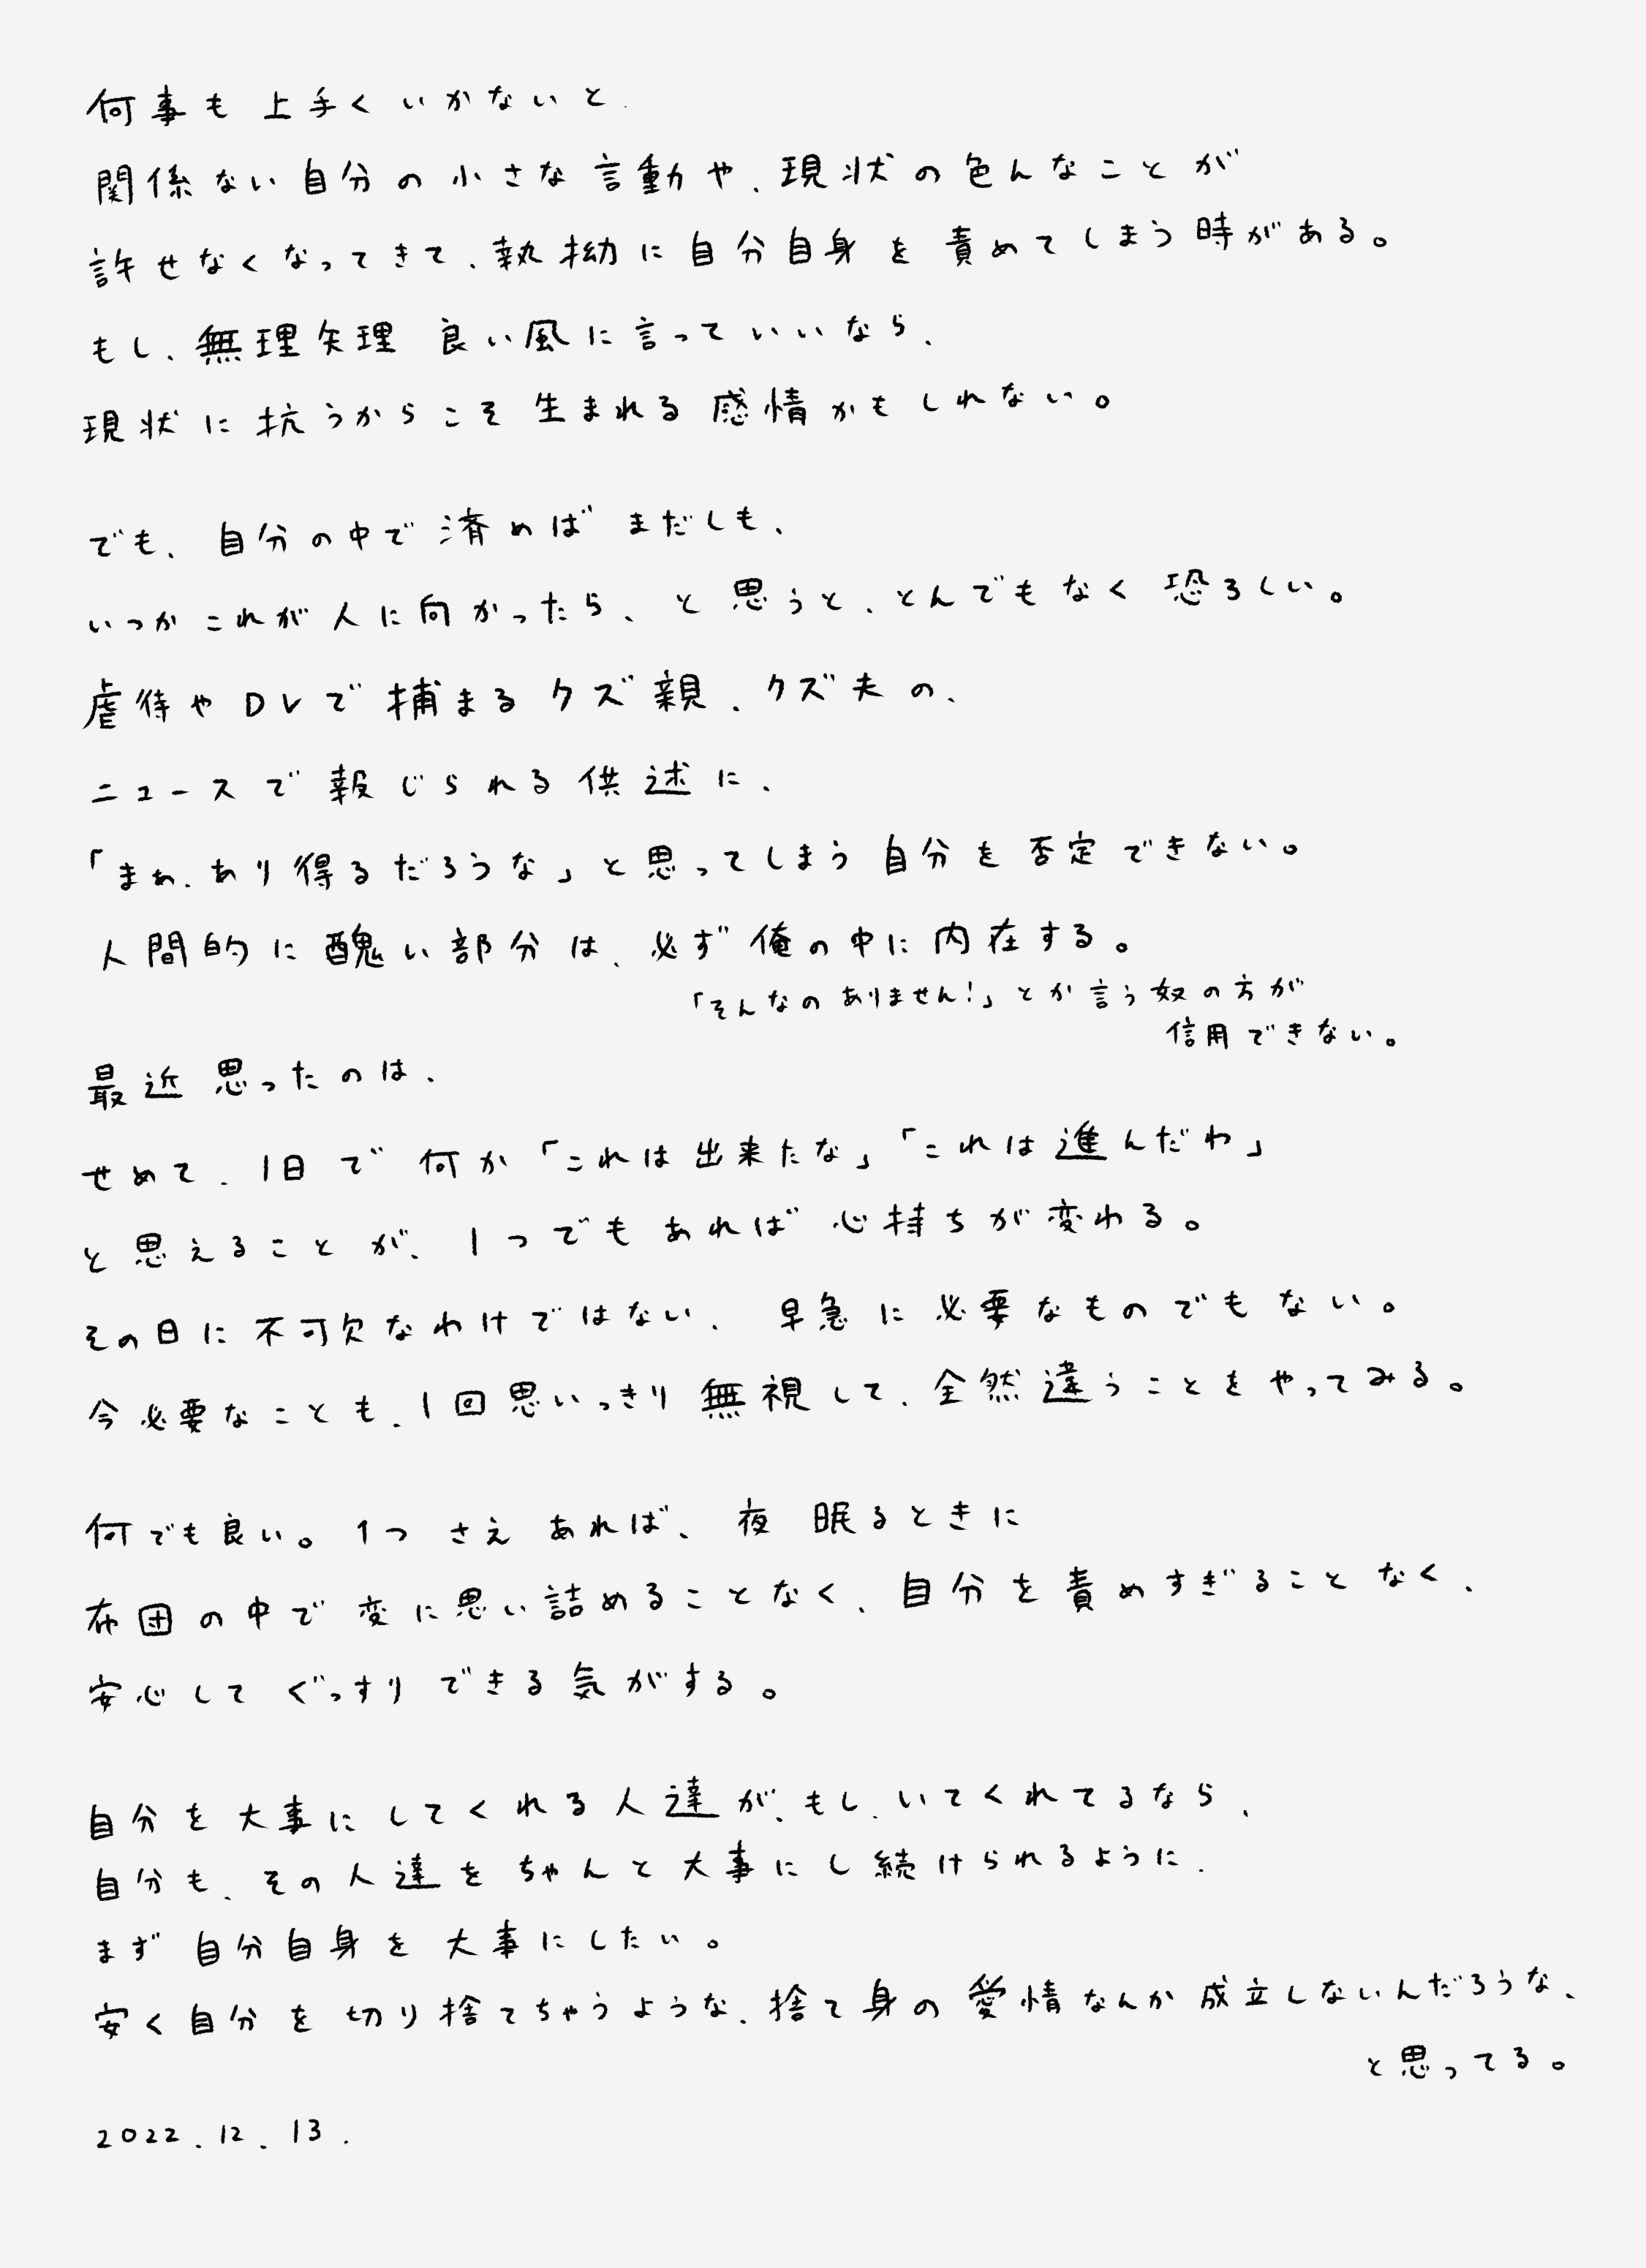 何事も上手くいかないと、
関係ない自分の小さな言動や、現状の色んなことが
許せなくなってきて、執拗に自分自身を責めてしまう時がある。
もし、無理矢理 良い風に言っていいなら、
現状に抗うからこそ生まれる感情かもしれない。
でも、自分の中で済めば まだしも、
いつかこれが人に向かったら、と思うと、とんでもなく恐ろしい。
虐待やDVで捕まるクズ親、クズ夫の、
ニュースで報じられる供述に、
「まぁ、あり得るだろうな」と思ってしまう自分を否定できない。
人間的に醜い部分は、必ず俺の中に内在する。
「そんなのありません!」とか言う奴の方が
信用できない。
最近思ったのは、
せめて、1日で何か「これは出来たな」「これは進んだわ」
と思えることが、1つでもあれば心持ちが変わる。
その日に不可欠なわけではない、 早急に必要なものでもない。
今必要なことも、1回思いっきり無視して、全然違うことをやってみる。
何でも良い。1つさえあれば、夜 眠るときに
布団の中で変に思い詰めることなく、自分を責めすぎることなく、
安心してぐっすりできる気がする。
自分を大事にしてくれる人達が、もし、いてくれてるなら、
自分も、その人達をちゃんと大事にし続けられるように、
まず自分自身を大事にしたい。
安く自分を切り捨てちゃうような、捨て身の愛情なんか成立しないんだろうな、
と思ってる。
2022.12.13.